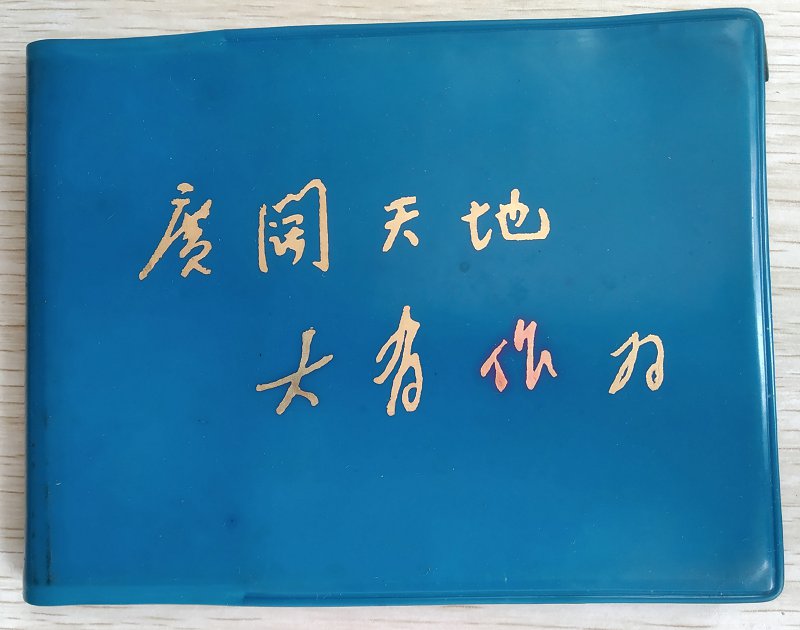 廣阔天地
大有作为